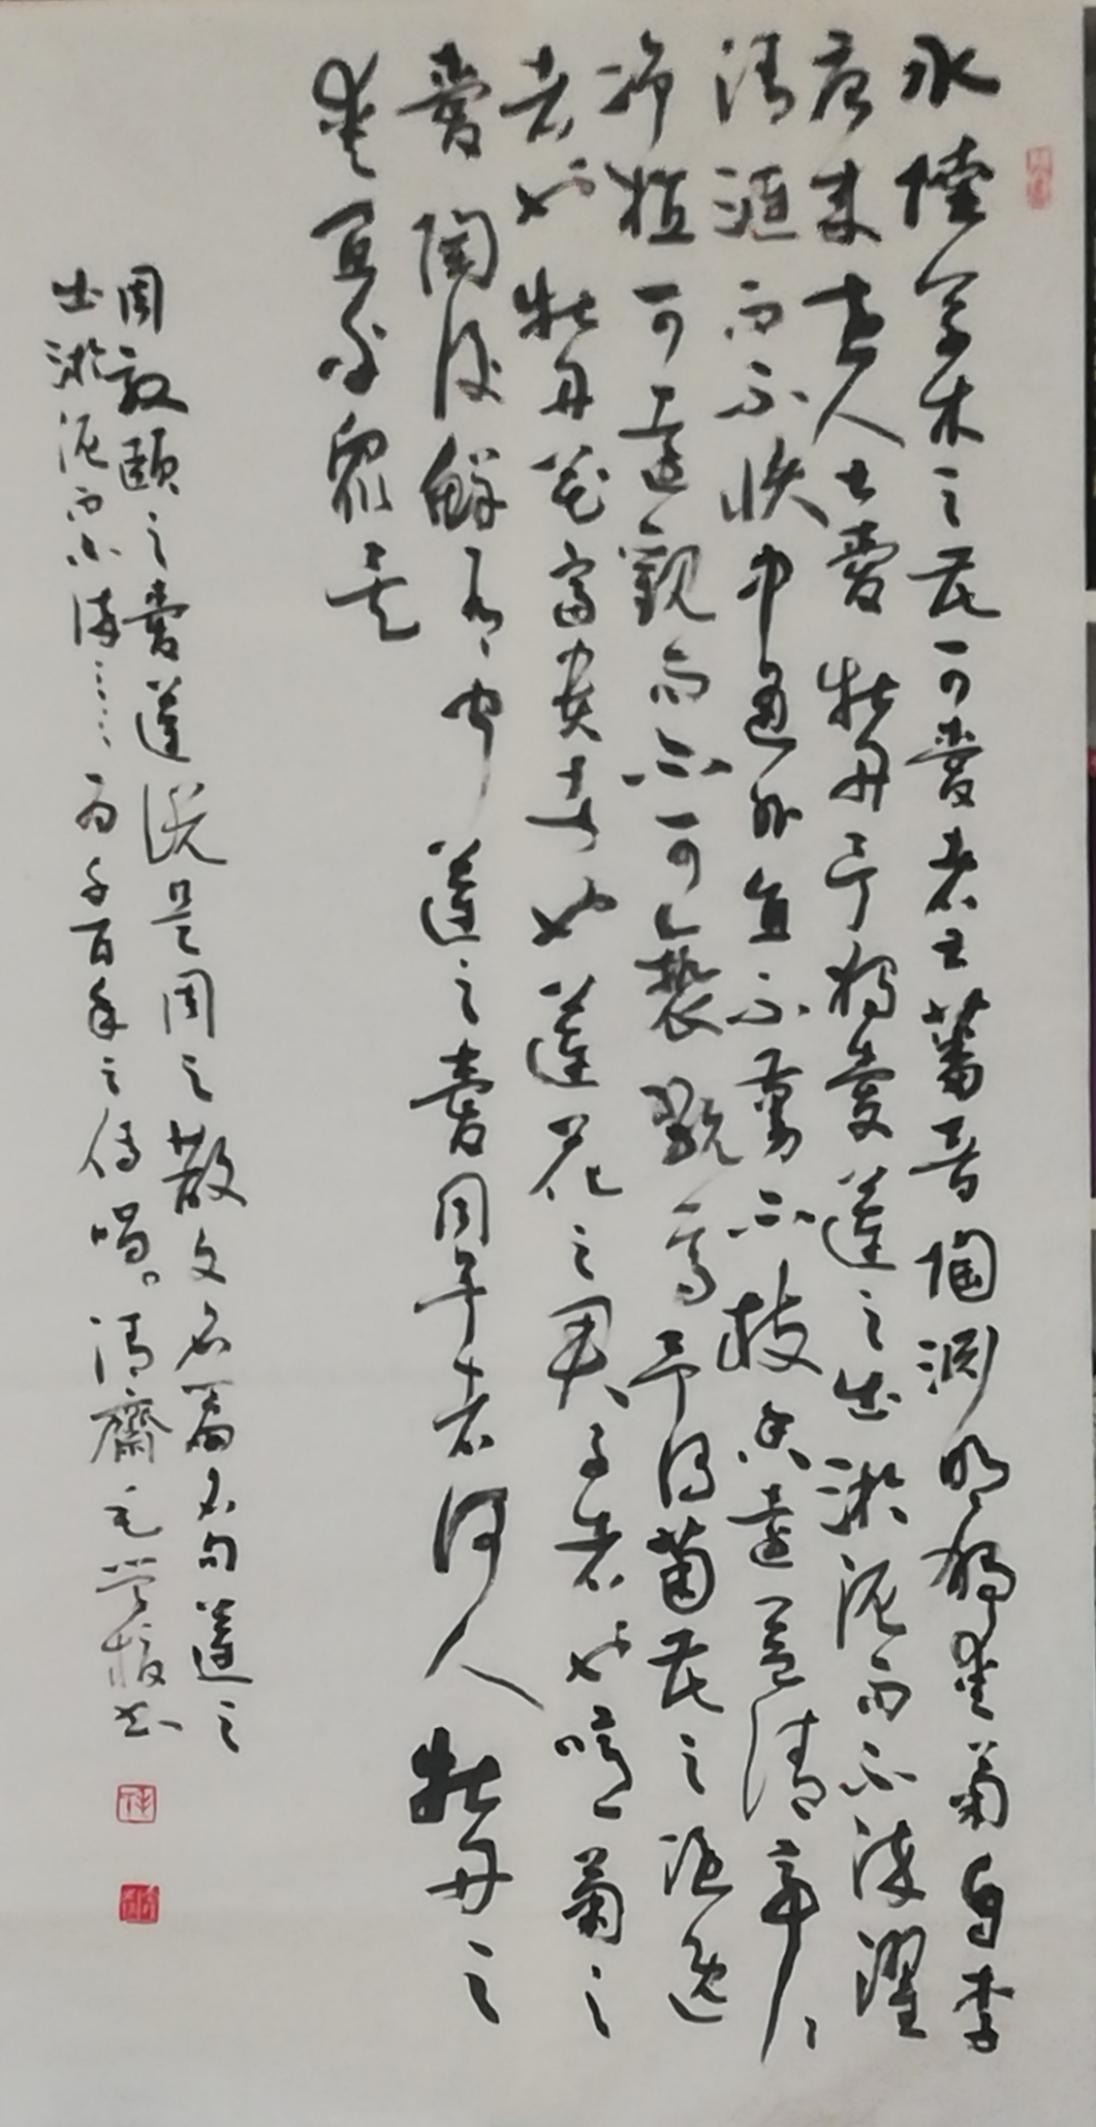 水陸草木之花可愛者甚蕃晉陶渊明獨愛菊自李
唐来世人甚愛牡丹予獨愛蓮之出淤泥而不染濯
清漣而不妖中通外直不蔓不枝香遠益清亭亭
净植可遠觀而不可褻翫焉予谓菊花之隐逸
者也牡丹花富贵者也蓮花之君子者也噫菊之
愛陶後鮮有闻蓮之愛同予者何人牡丹之
愛宜乎眾矣
周敦頤之愛蓮説是周之散文名篇名句蓮之
出淤泥而不染……为千百年之傳唱。清齋毛学振书